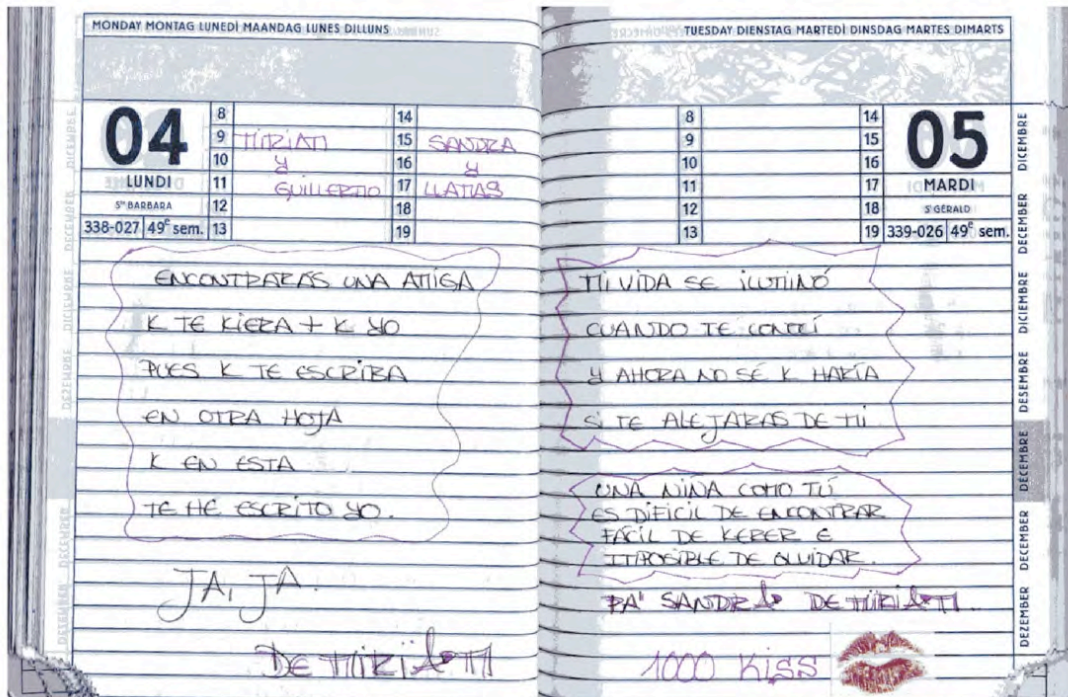 MONDAY MONTAG LUNEDÌ MAANDAG LUNES DILLUNS
04
LUNDI
STE BARBARA
338-027 49e sem.
8
9 MIRIAM
10 y
11 GUILLERMO
12
13
14
15 SANDRA
16 y
17 LLAMAS
18
19
ENCONTRARÁS UNA AMIGA
K TE KIERA + K YO
PUES K TE ESCRIBA
EN OTRA HOJA
K EN ESTA
TE HE ESCRITO YO.
JA, JA.
DE MIRIAM
TUESDAY DIENSTAG MARTEDÌ DINSDAG MARTES DIMARTS
8
9
10
11
12
13
14
15
16
17
18
19
05
MARDI
S GÉRALD
339-026 49e sem.
MI VIDA SE ILUMINÓ
CUANDO TE CONOCÍ
Y AHORA NO SÉ K HARÍA
SI TE ALEJARAS DE MÍ.
UNA NIÑA COMO TÚ
ES DIFÍCIL DE ENCONTRAR
FÁCIL DE KERER E
IMPOSIBLE DE OLVIDAR.
PA' SANDRA DE MIRIAM.
1000 KISS
DICEMBRE
DECEMBER
DICIEMBRE
DESEMBRE
DÉCEMBRE
DECEMBER
DEZEMBER